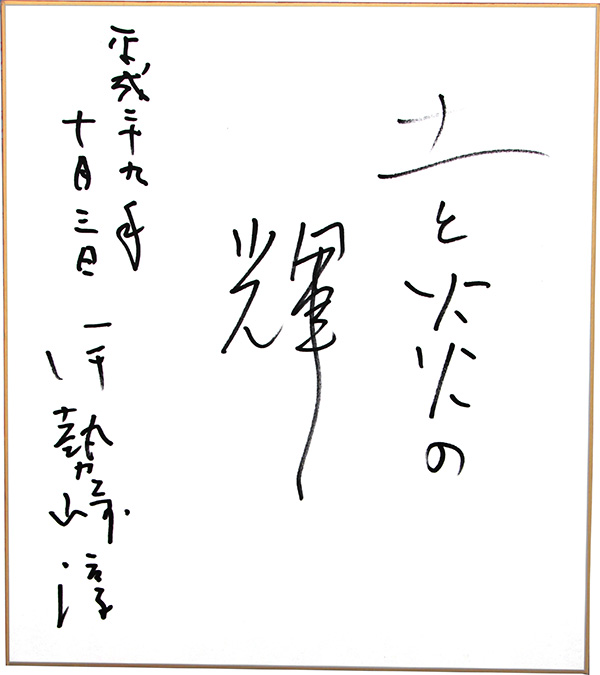 土と炎の
輝
平成二十九年
十月三日
伊勢﨑淳